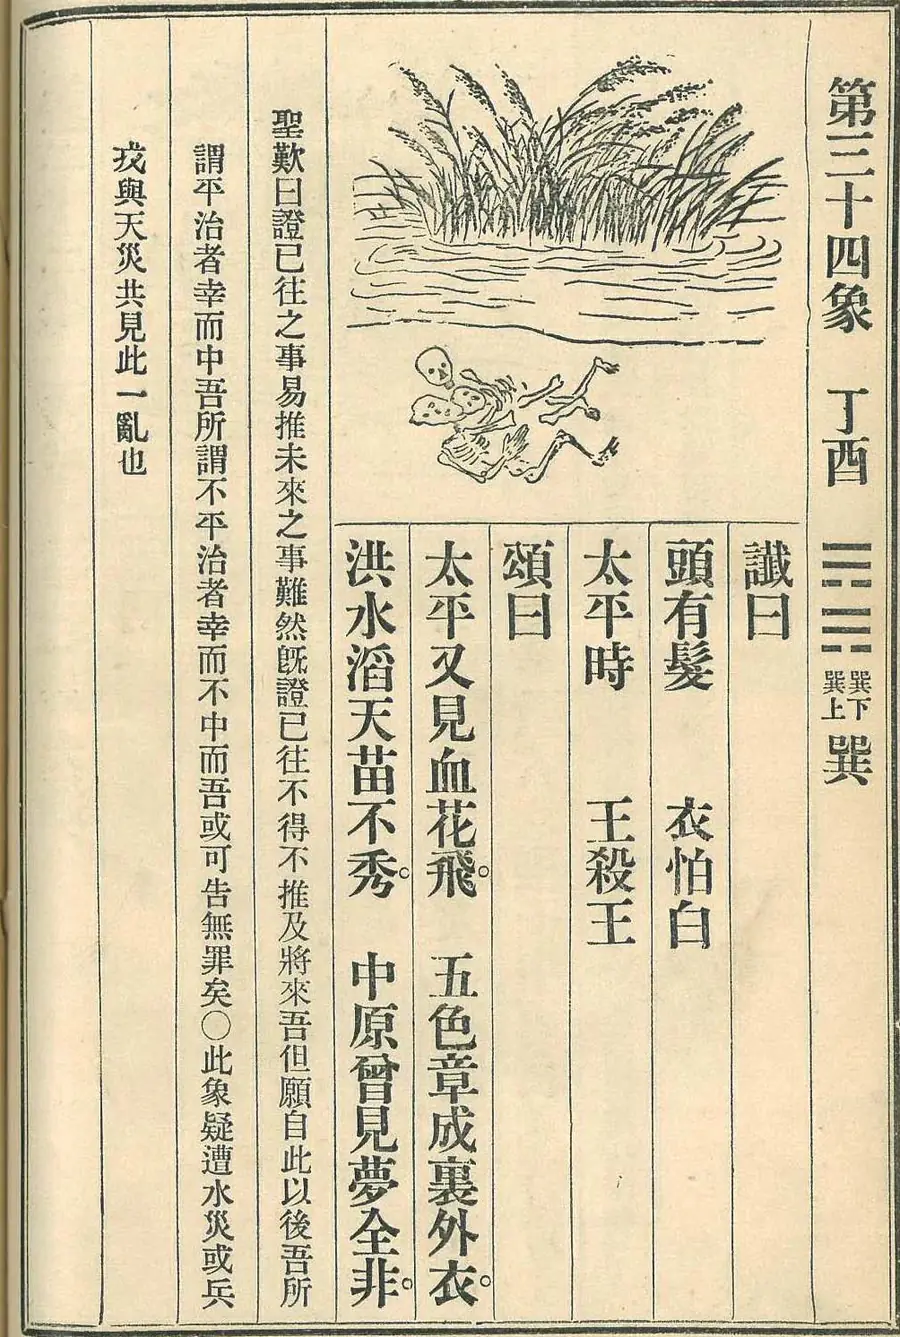 第三十四象 丁酉 ䷸ 巽下巽上 巽
讖曰
頭有髮 衣怕白
太平時 王殺王
頌曰
太平又見血花飛。 五色章成裏外衣。
洪水滔天苗不秀。 中原曾見夢全非。
聖歎曰證已往之事易推未來之事難然旣證已往不得不推及將來吾但願自此以後吾所
謂平治者幸而中吾所謂不平治者幸而不中而吾或可告無罪矣〇此象疑遭水災或兵
戎與天災共見此一亂也